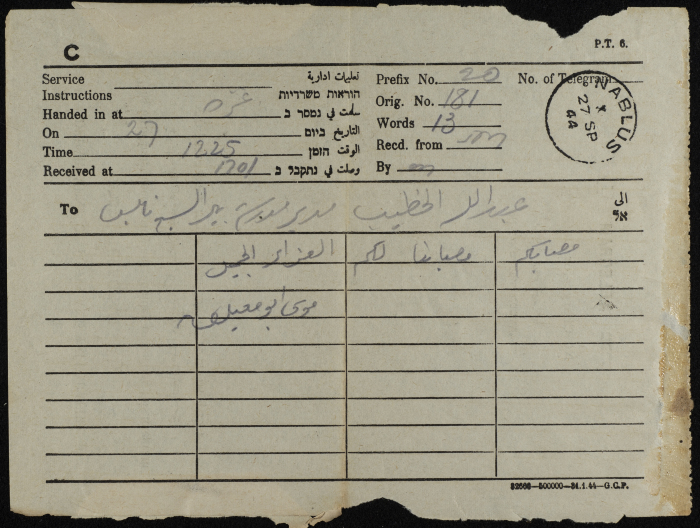 P.T. 6.
C
Service تعليمات ادارية
Instructions הוראות משרדיות
Prefix No. 20 No. of Telegram
Handed in at غزة سلمت في נמסר ב
Orig. No. 181
On 27 التاريخ ביום
Words 13
Time 1225 الوقت הזמן
Recd. from
Received at 1701 وصلت في נתקבל ב
By
NABLUS
27 SP
44
To عبد الله الخطيب مدير مدرسة بير السبع نابلس الى אל
مصابكم مصابنا لكم العزاء الجميل
موسى ابو معيلق
32566—500000—24.1.44—G.C.P.